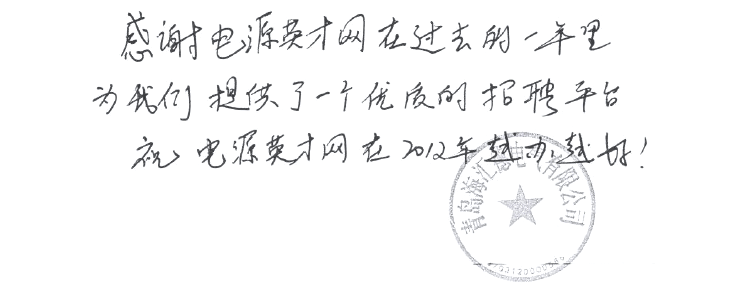 感谢电源英才网在过去的一年里
为我们提供了一个优质的招聘平台
祝电源英才网在2012年越办越好!
青岛海汇德电气有限公司